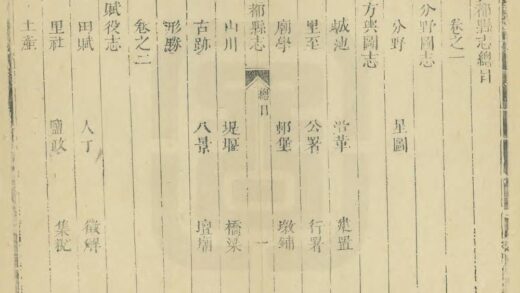 都縣志總目
卷之一
分野圖志
分野 星圖
方輿圖志
城池 沿革 建置
里至 公署 行署
廟學 邨堡 墩鋪
都縣志 總目 一
山川 堤堰 橋梁
古跡 八景 壇廟
形勝
卷之二
賦役志
田賦 人丁 徵解
里社 鹽政 集稅
土產